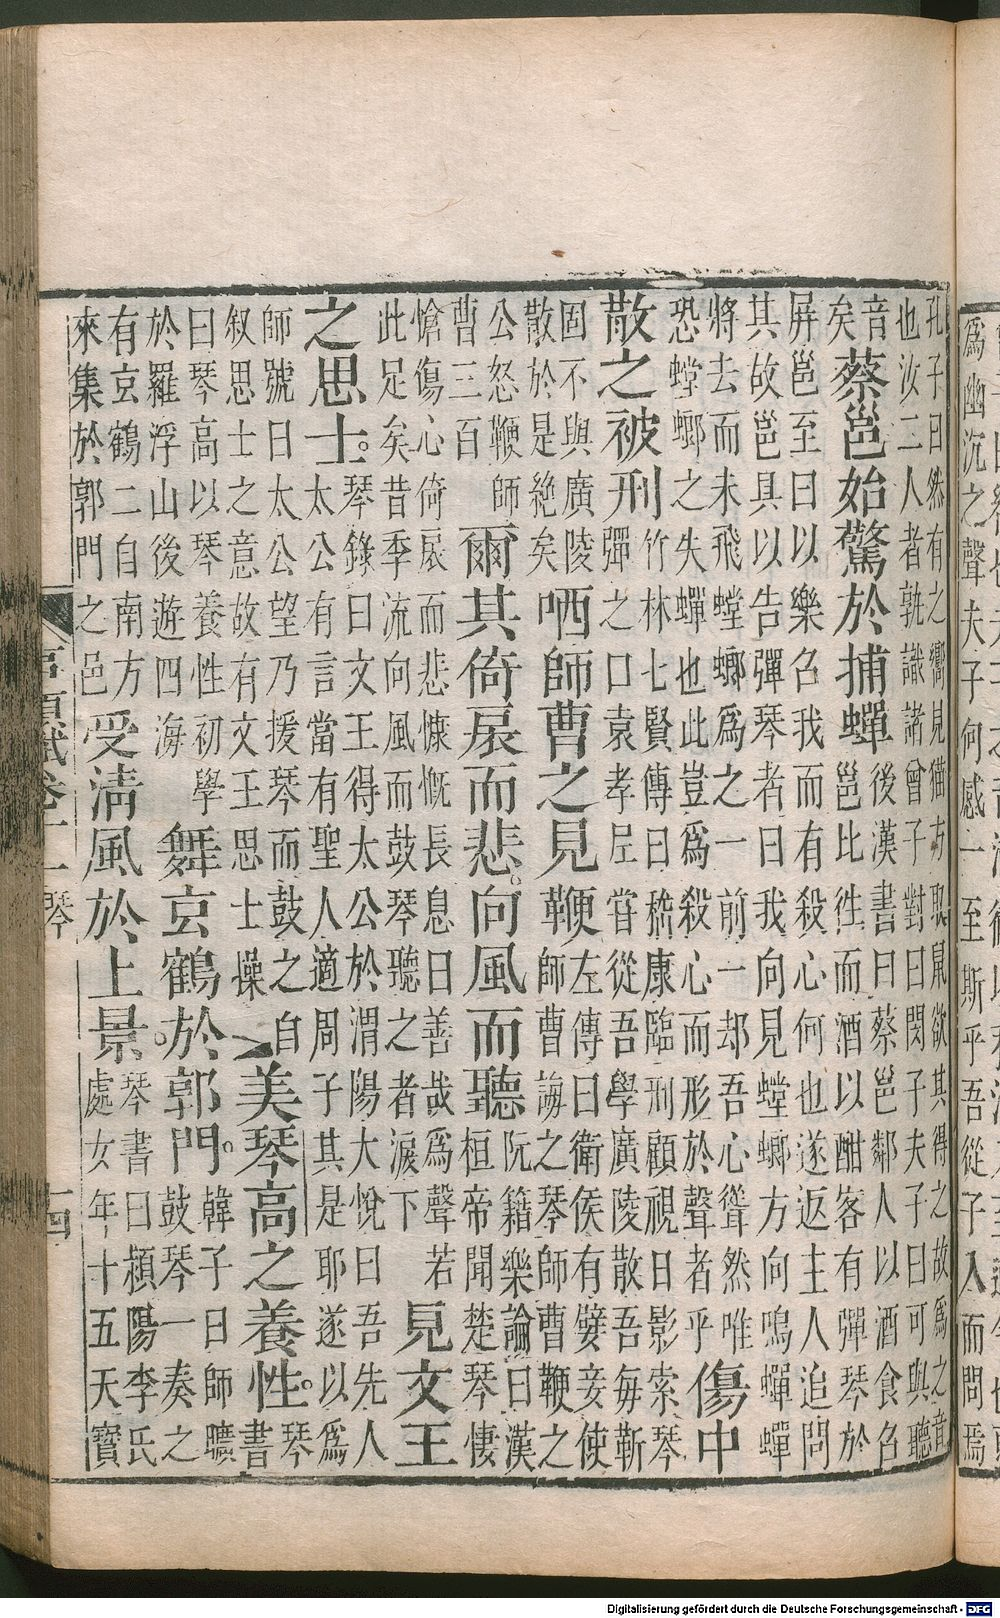 爲幽沉之聲夫子何感一至斯乎吾從子入而問焉
孔子曰然有之嚮見猫方取鼠欲其得之故爲之音
也汝二人者孰識諸曾子對曰閔子夫子曰可與聽
音矣蔡邕始驚於捕蟬後漢書曰蔡邕鄰人以酒食召
邕比徃而酒以酣客有彈琴於
屏邕至曰以樂召我而有殺心何也遂返主人追問
其故邕具以告彈琴者曰我向見螳螂方向鳴蟬蟬
將去而未飛螳螂爲之一前一却吾心聳然唯
恐螳螂之失蟬也此豈爲殺心而形於聲者乎傷中
散之被刑竹林七賢傳曰嵇康臨刑顧視日影索琴
彈之口袁孝尼甞從吾學廣陵散吾每靳
固不與廣陵散於是絶矣哂師曹之見鞭左傳曰衛侯有嬖妾使
師曹誨之琴師曹鞭之
公怒鞭師曹三百爾其倚扆而悲向風而聽阮籍樂論曰漢桓帝聞楚琴悽
愴傷心倚扆而悲慷慨長息曰善哉爲聲若
此足矣昔季流向風而鼓琴聽之者淚下見文王
之思士琴錄曰文王得太公於渭陽大悅曰吾先人
太公有言當有聖人適周子其是耶遂以爲
師號曰太公望乃援琴而鼓之自
叙思士之意故有文王思士操美琴高之養性琴書
曰琴高以琴養性初學
於羅浮山後遊四海舞玄鶴於郭門韓子曰師曠鼓琴一奏之
有玄鶴二自南方
來集於郭門之邑受清風於上景琴書曰潁陽李氏
處女年十五天寶
事類賦卷十一 琴 十四
Digitalisierung gefördert durch die Deutsche Forschungsgemeinschaft - DFG